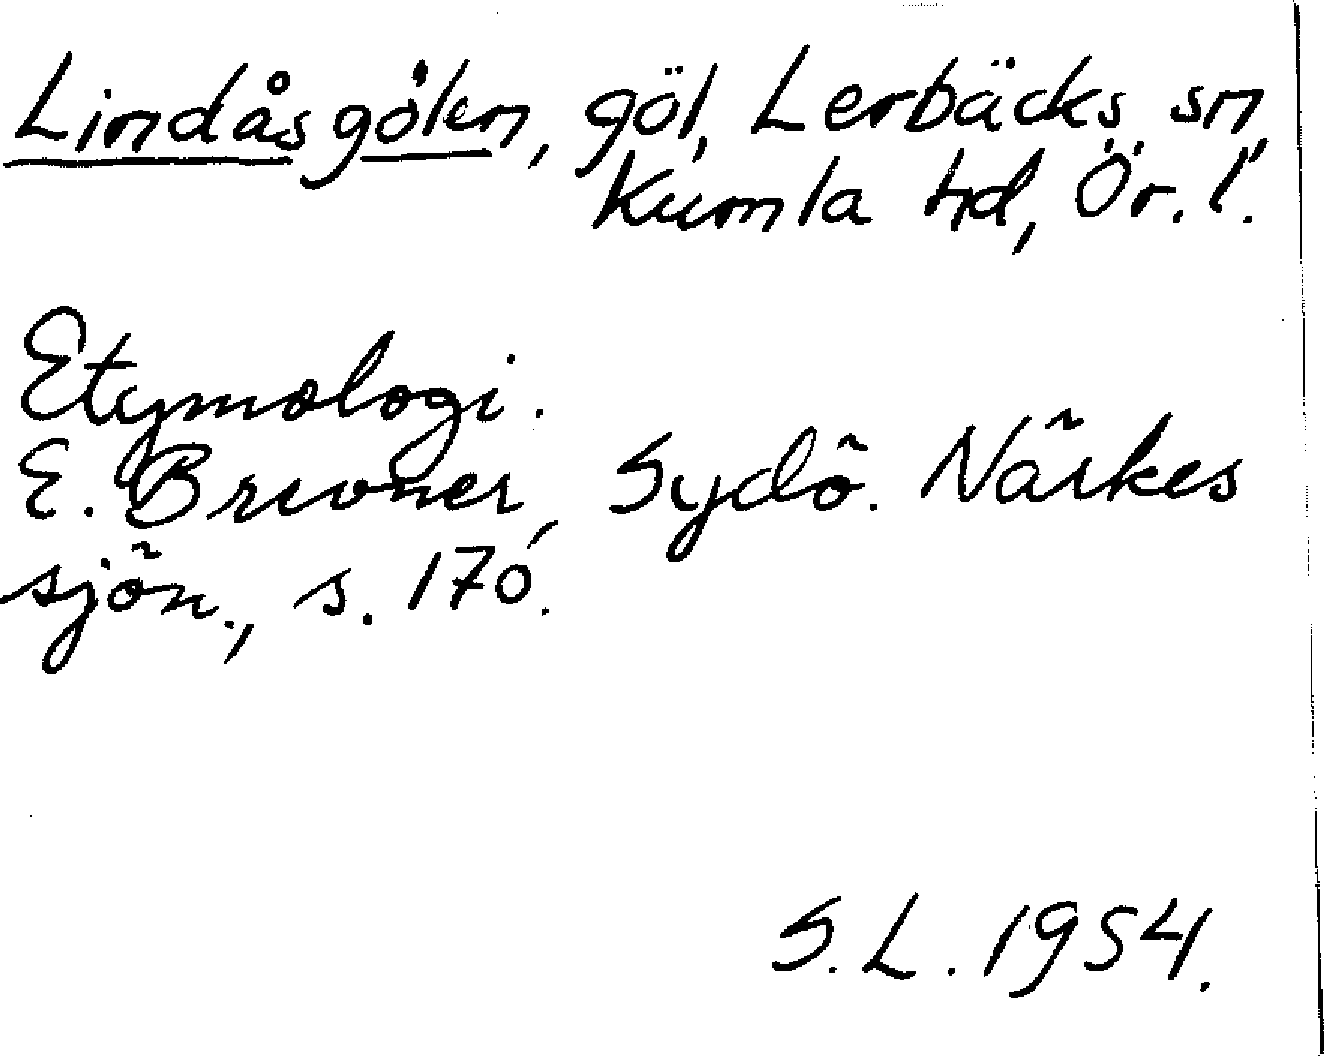 Lindåsgölen, göl, Lerbäcks sn,
Kumla hd, Ör. l.
Etymologi.
E. Brevner, Sydö. Närkes
sjön., s. 170.
S.L. 1954.